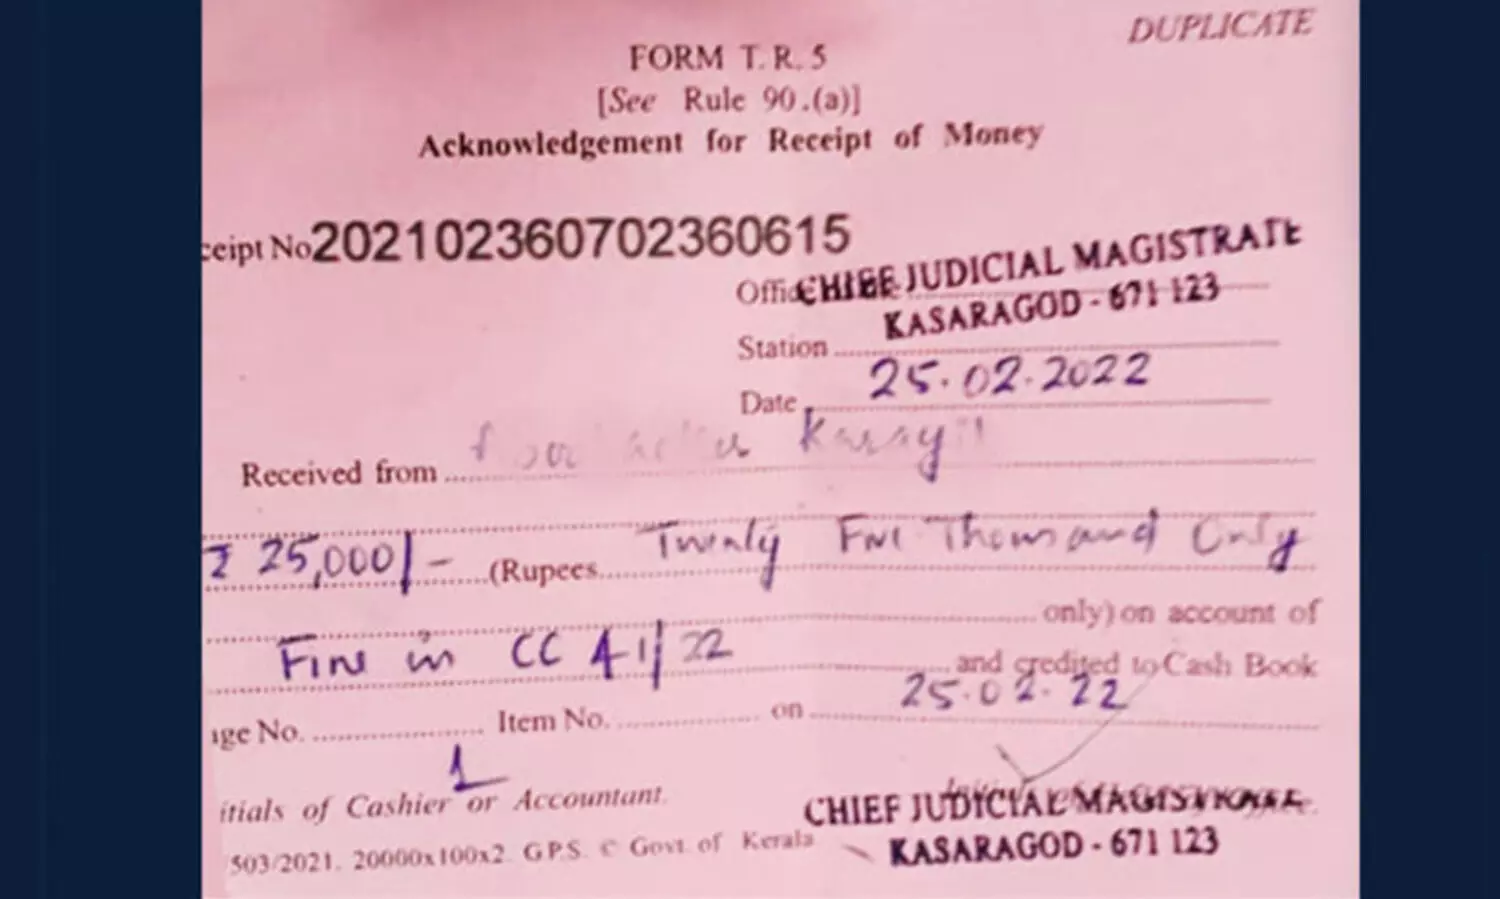 DUPLICATE
FORM T. R. 5
[See Rule 90.(a)]
Acknowledgement for Receipt of Money
ceipt No 202102360702360615
Office CHIEF JUDICIAL MAGISTRATE
KASARAGOD - 671 123
Station
Date 25.02.2022
Received from
₹ 25,000/- (Rupees Twenty Five Thousand Only
only) on account of
Fine in CC 41/22 and credited to Cash Book
age No. Item No. on 25.02.22
1
itials of Cashier or Accountant.
CHIEF JUDICIAL MAGISTRATE
KASARAGOD - 671 123
503/2021. 20000x100x2. G.P.S. © Govt. of Kerala